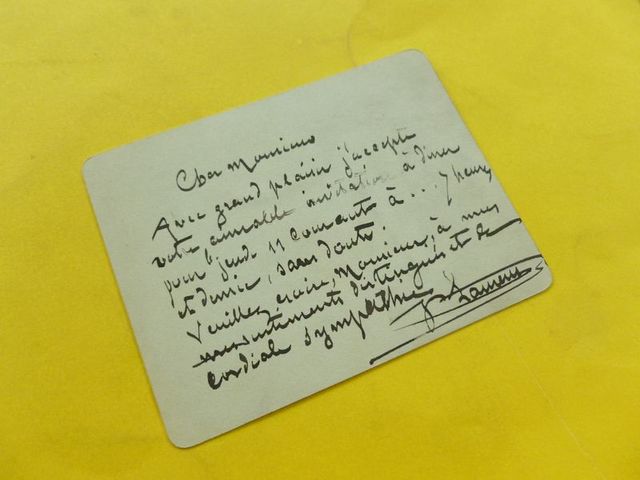 Cher Monsieur
Avec grand plaisir j'accepte
votre aimable invitation à dîner
pour jeudi 11 Courant à ... 7 heures
et demie, sans doute.
Veuillez croire, Monsieur, à mes
sentiments distingués et de
cordiale sympathie